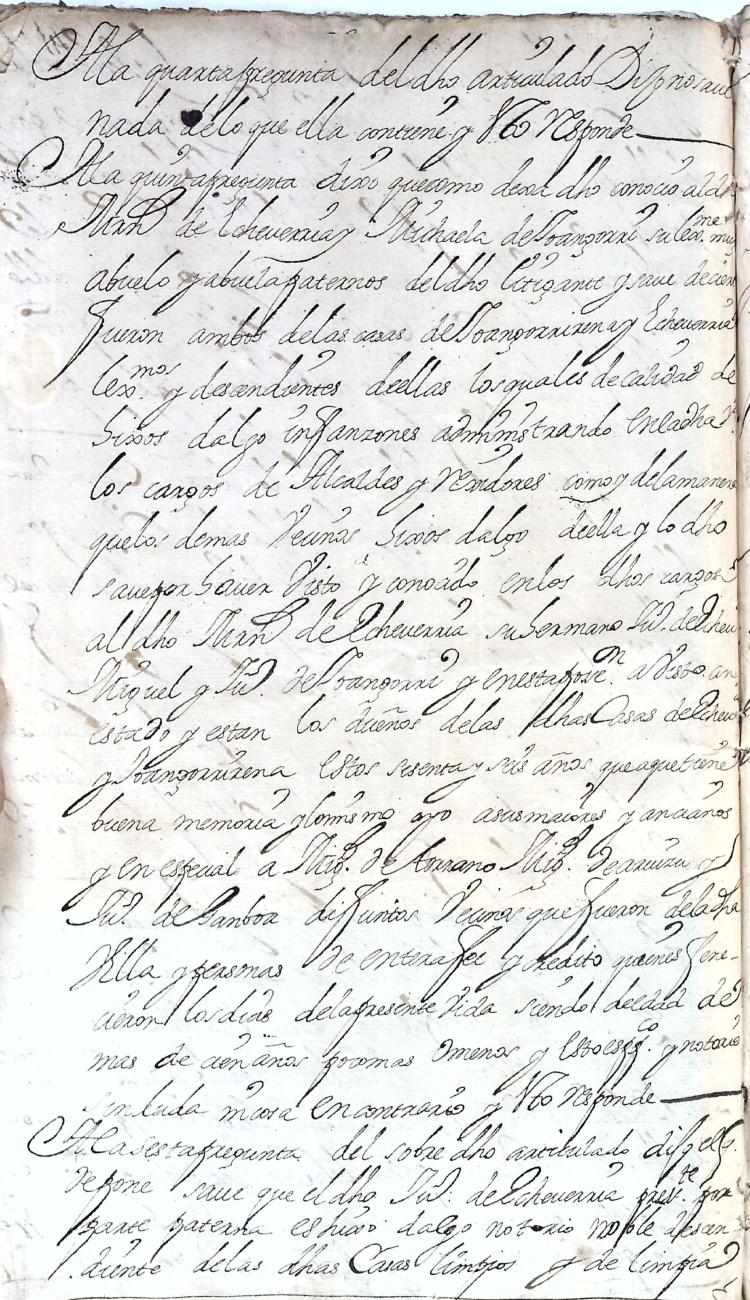 A la quarta pregunta del dho articulado Dijo no save
nada de lo que ella contiene y esto responde
A la quinta pregunta dixo que como dexa dho conocio al dho
Mrn de Echeverria y Michaela de Joangorri su lexma muger
abuelo y abuela paternos del dho litigante y save de cierto
fueron ambos de las casas de Joangorrirena y Echeverria
lexmos y descendientes de ellas los quales de calidad de
hixos dalgo infanzones administrando en la dha Va
los cargos de Alcaldes y Rexidores como y de la manera
que los demas vecinos hixos dalgo de ella y lo dho
save por haver visto y conocido en los dhos cargos
al dho Mrn de Echeverria su hermano Ju. de Echeva
Miguel y Ju. de Joangorri y en esta posson a visto an
estado y estan los dueños de las dhas Casas de Echeva
y Joangorrirena estos sesenta y seis años que a que tiene
buena memoria y lo mismo oyo a sus maiores y ancianos
y en especial a Mig. de Mig. de y
Ju. de difuntos vecinos que fueron de la dha
Villa y personas de entera fee y credito quienes fene-
cieron los dias de la presente vida siendo de edad de
mas de cien años poco mas o menos y esto es pco y notorio
sin duda ni cosa en contrario y esto responde
A la sesta pregunta del sobre dho articulado
depone save que el dho Ju. de Echeverria preste por
parte paterna es hixo dalgo notorio noble descen
diente de las dhas Casas limpios y de limpia